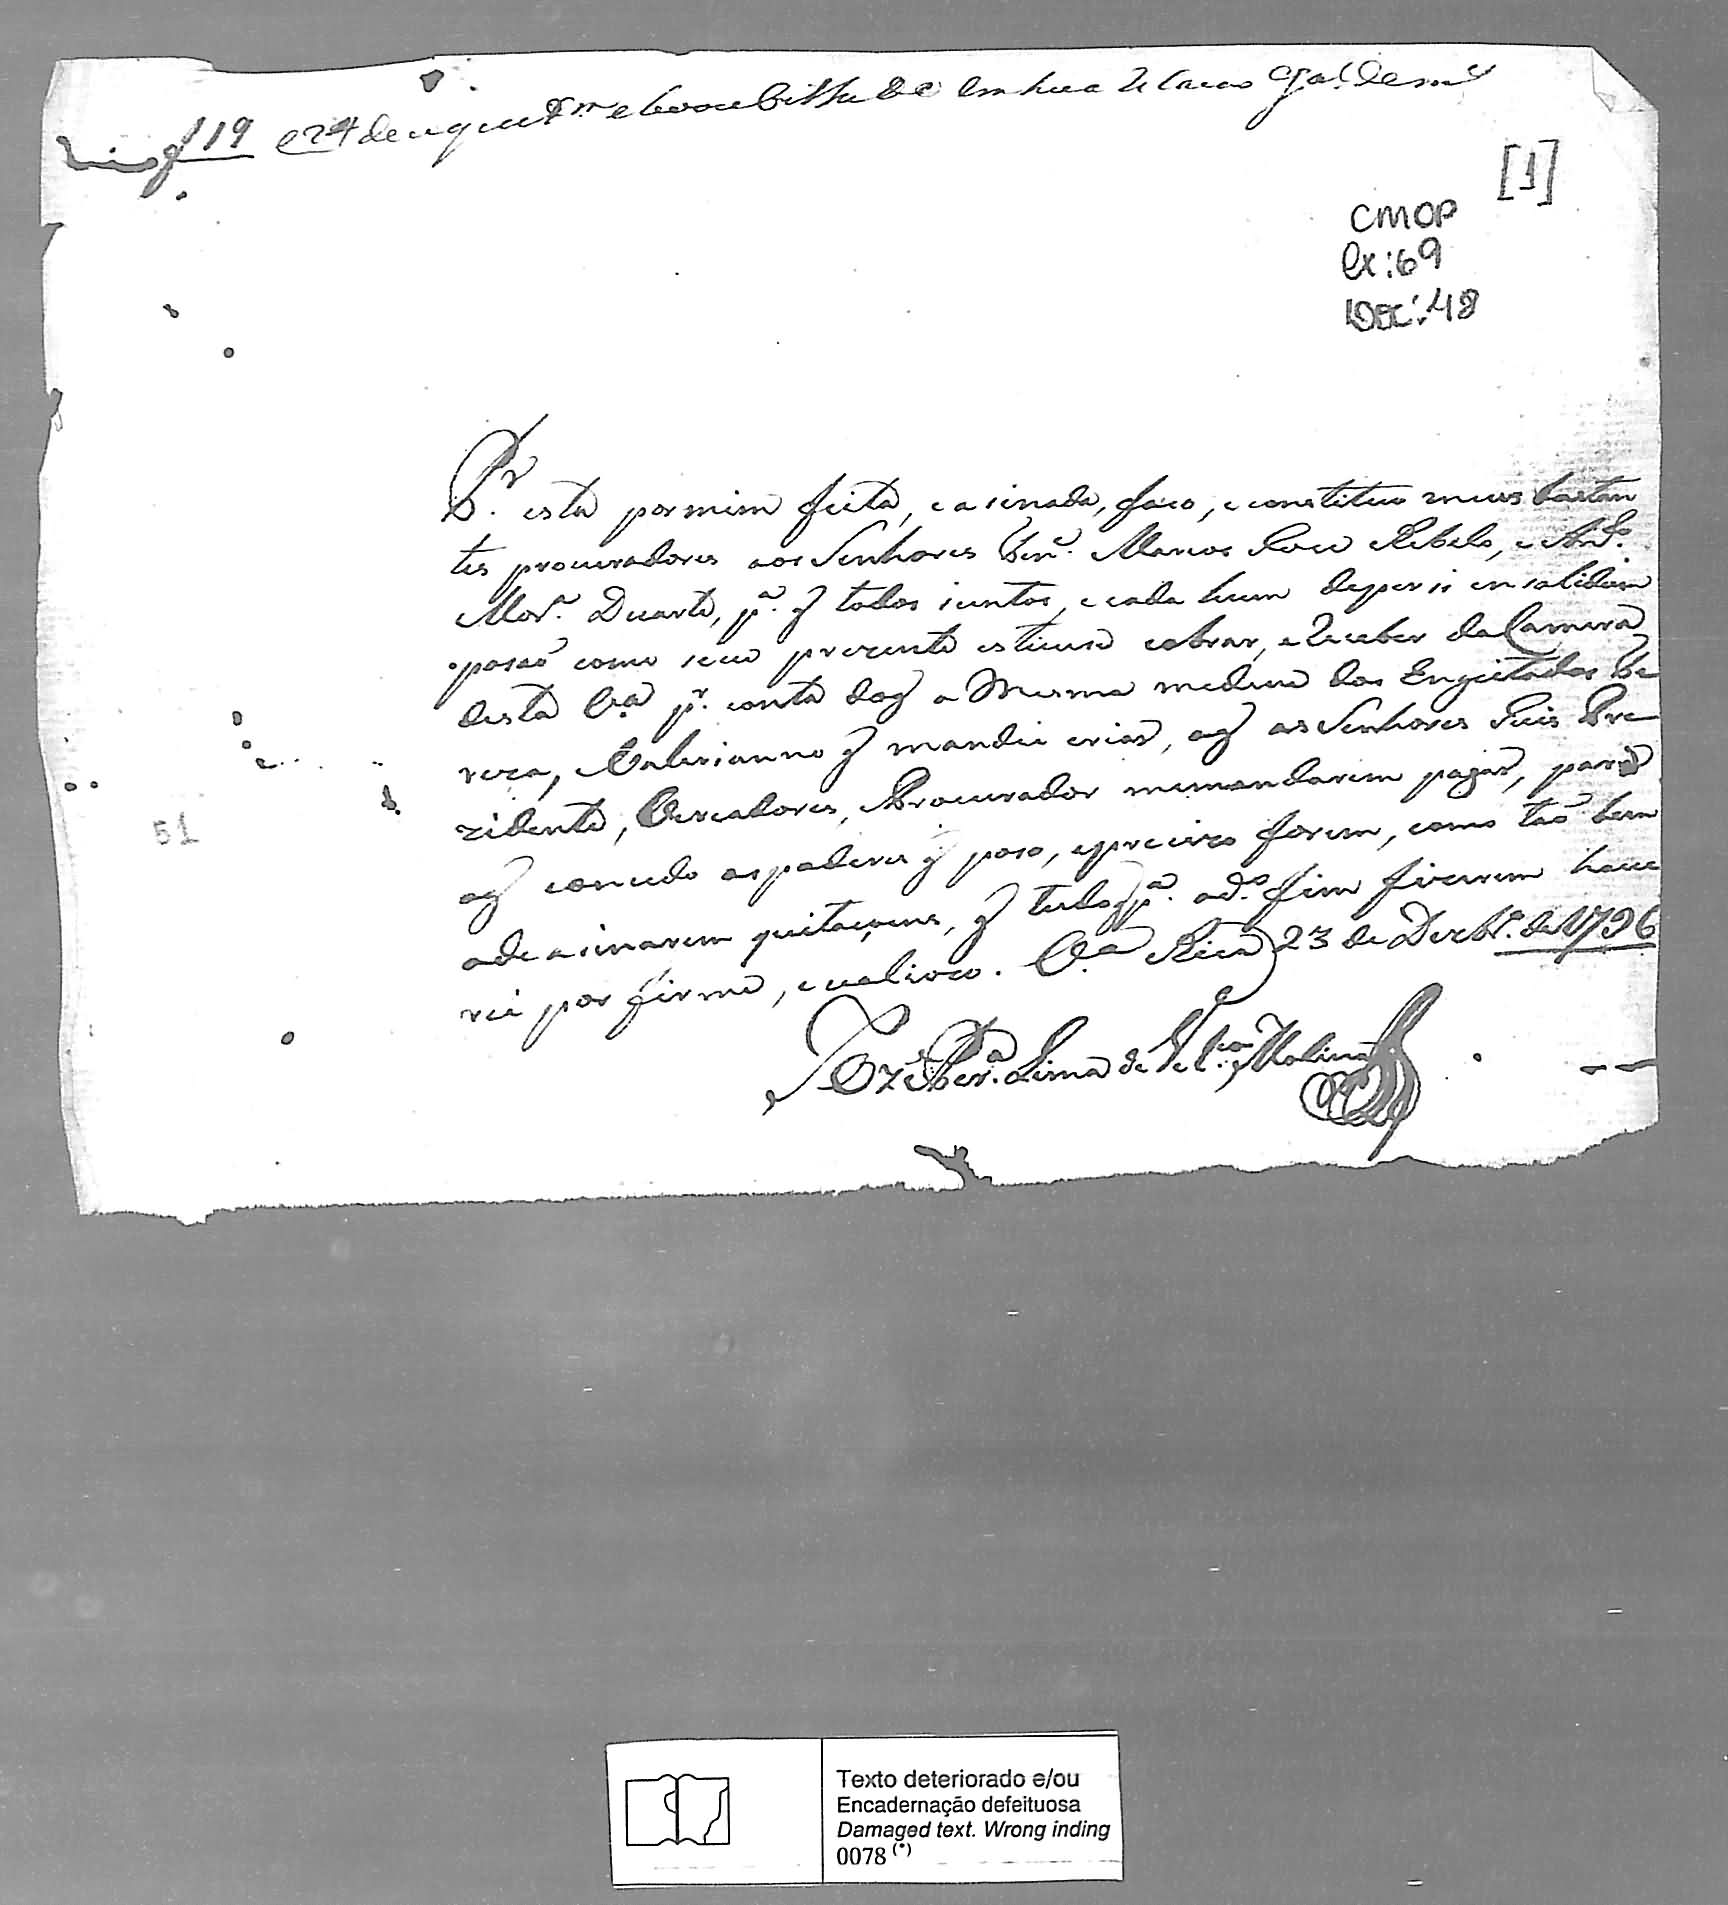 f 19 e 24 de
[1]
CMOP
Cx: 69
DOC: 48
Pr. esta por mim feita, e asinada, faço, e constituo meus bastan
tes procuradores aos Senhores Marcos Rebelo, e
Duarte, pª. q todos juntos, e cada hum deper si insolidum
posaõ como seu prezente estiuese cobrar, e Receber da Camera
desta Vª pr. conta doq a Mesma me deue dos Engeitados The
reza, Valerianno q mandei criar, oq os Senhores Juis Pre
zidente, Vereadores, Procurador me mandarem pagar, para
oq concedo os poderes q poso, e precizos forem, como taõ bem
de asinarem quitaçoens, q tudo q pª. o dº. fim fizerem haue
rei por firme, e valiozo. Vª Rica 23 de Dezbrº. de 1796
Lima de Molina
51
Texto deteriorado e/ou
Encadernação defeituosa
Damaged text. Wrong inding
0078 (*)